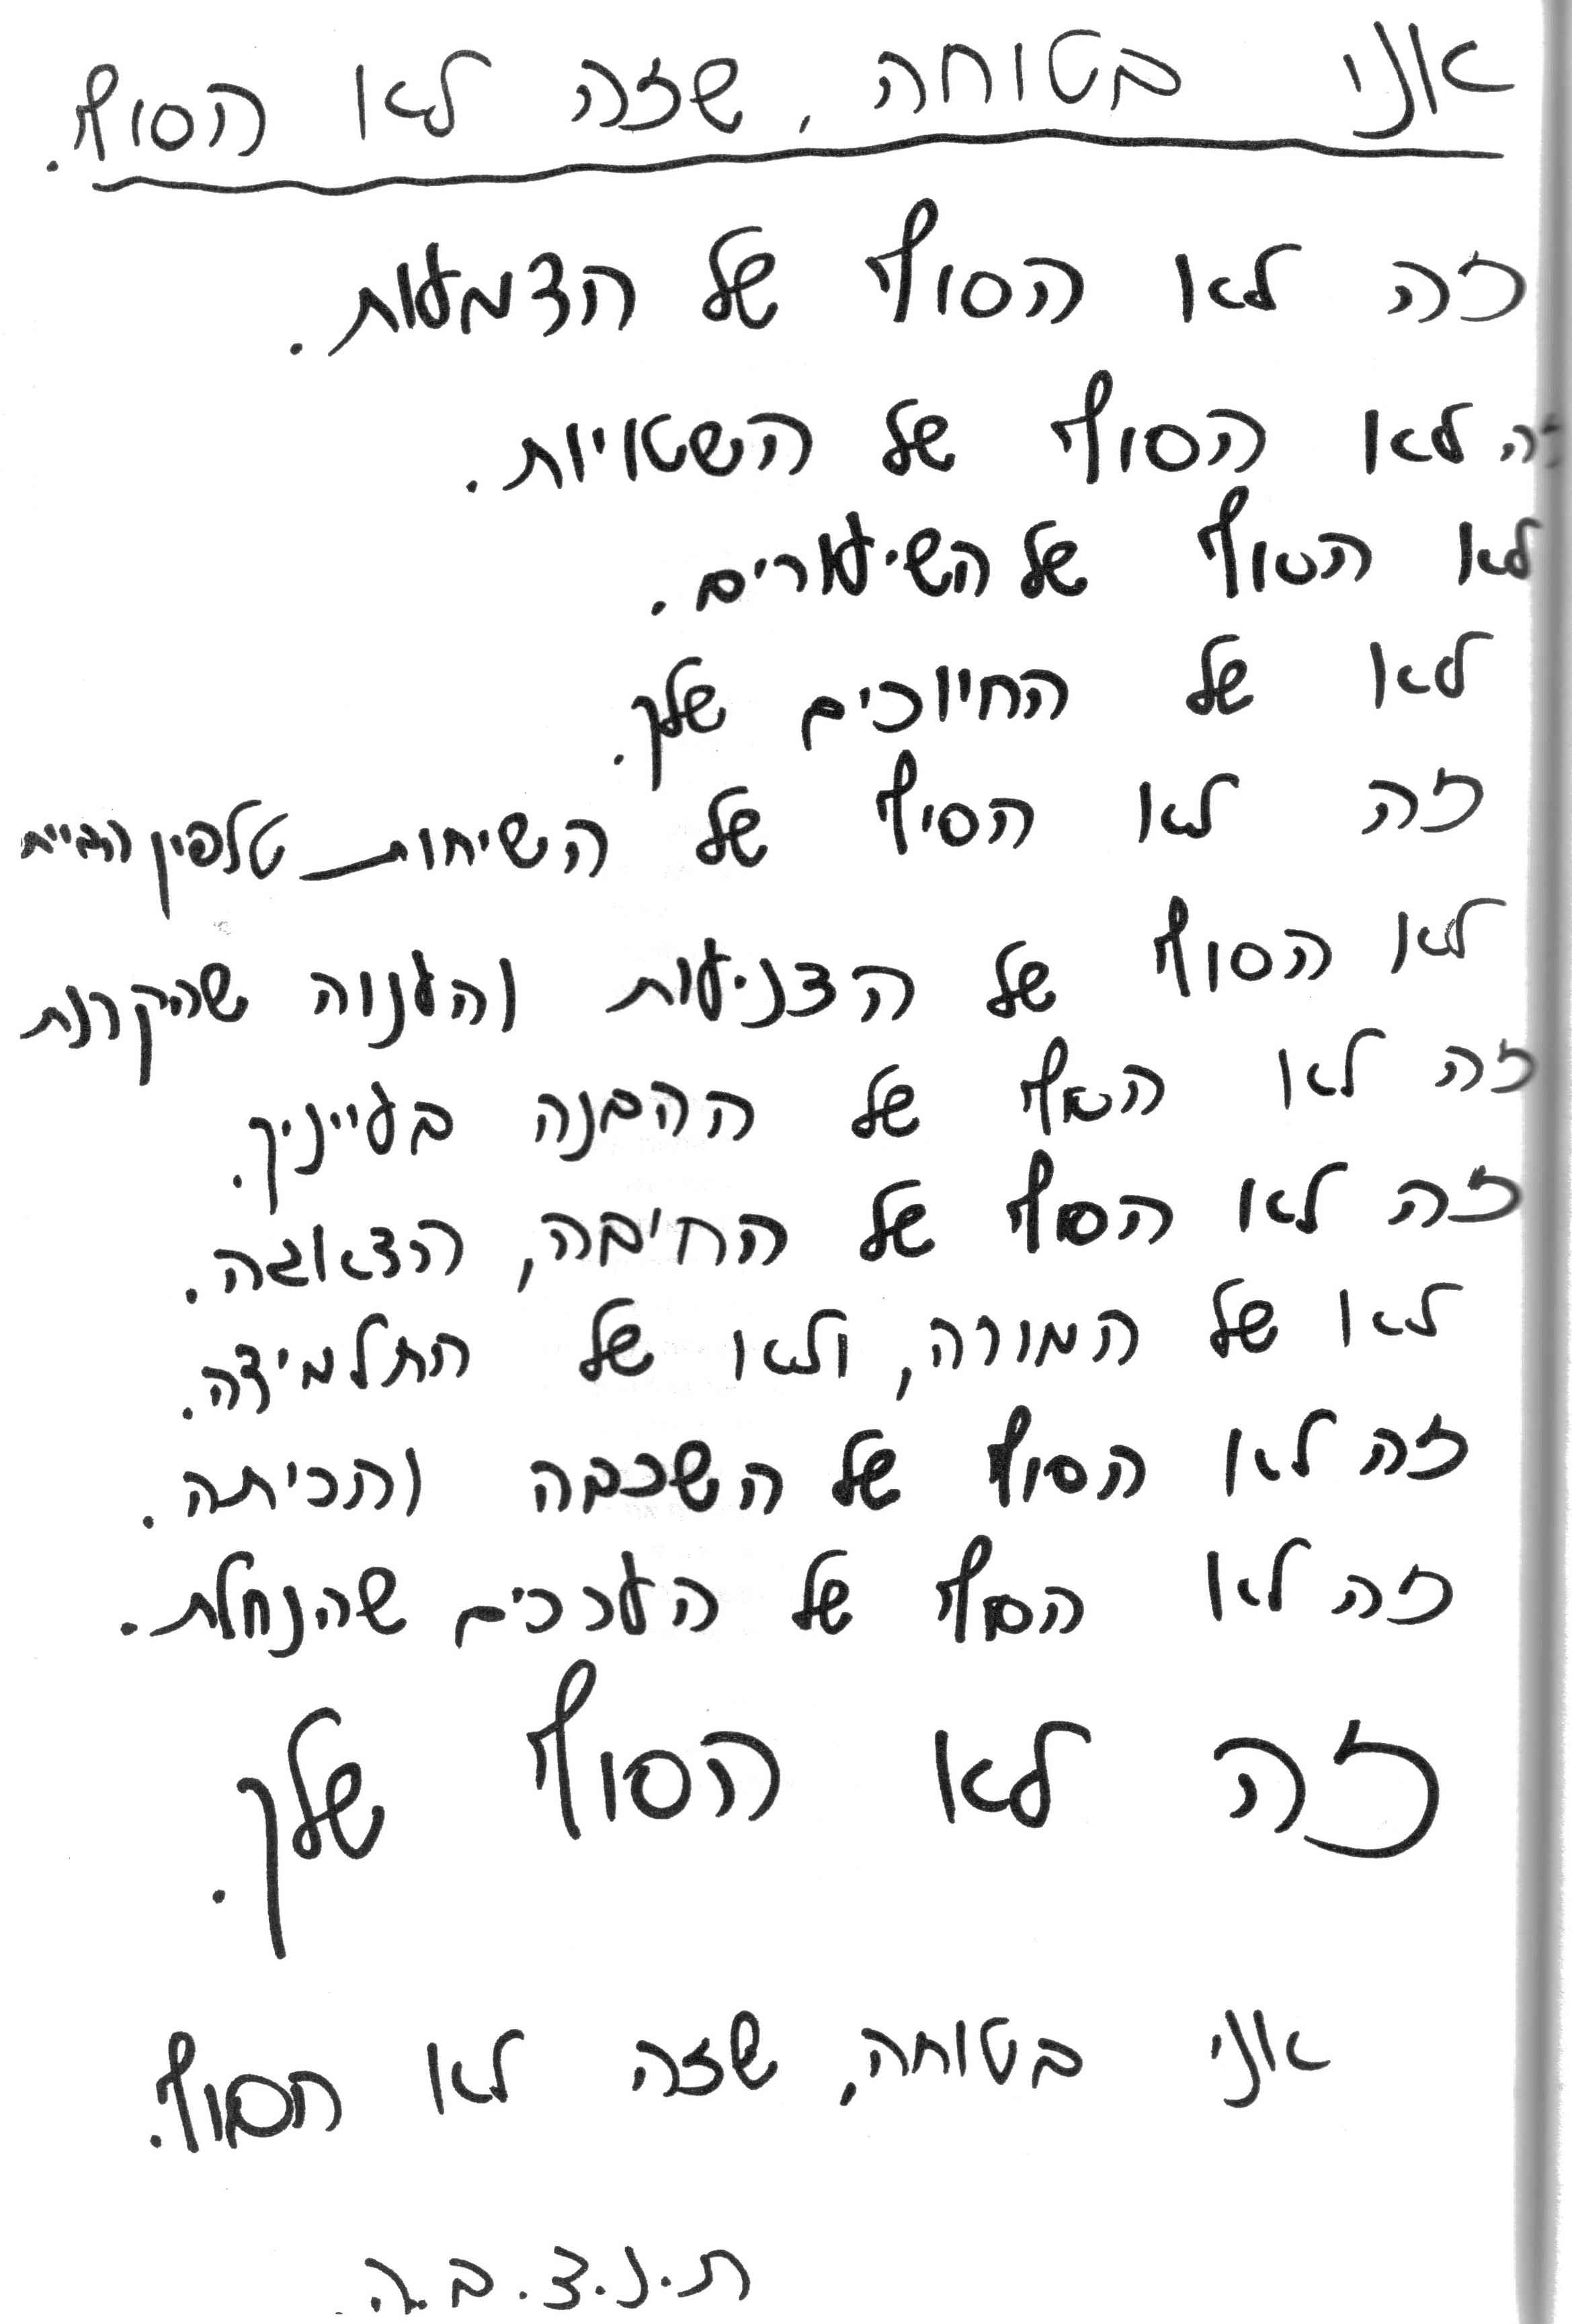 אני בטוחה, שזה לא הסוף.
זה לא הסוף של הדמעות.
זה לא הסוף של השטויות.
לא הסוף של השיעורים.
לא של החיוכים שלך.
זה לא הסוף של השיחות טלפון
לא הסוף של הצניעות והענוה שהקרנת
זה לא הסוף של ההבנה בעייניך.
זה לא הסוף של החיבה, הדאגה.
לא של המורה, ולא של התלמידה.
זה לא הסוף של השכבה והכיתה.
זה לא הסוף של הערכים שהנחלת.
זה לא הסוף שלך.
אני בטוחה, שזה לא הסוף.
ת.נ.צ.ב.ה.